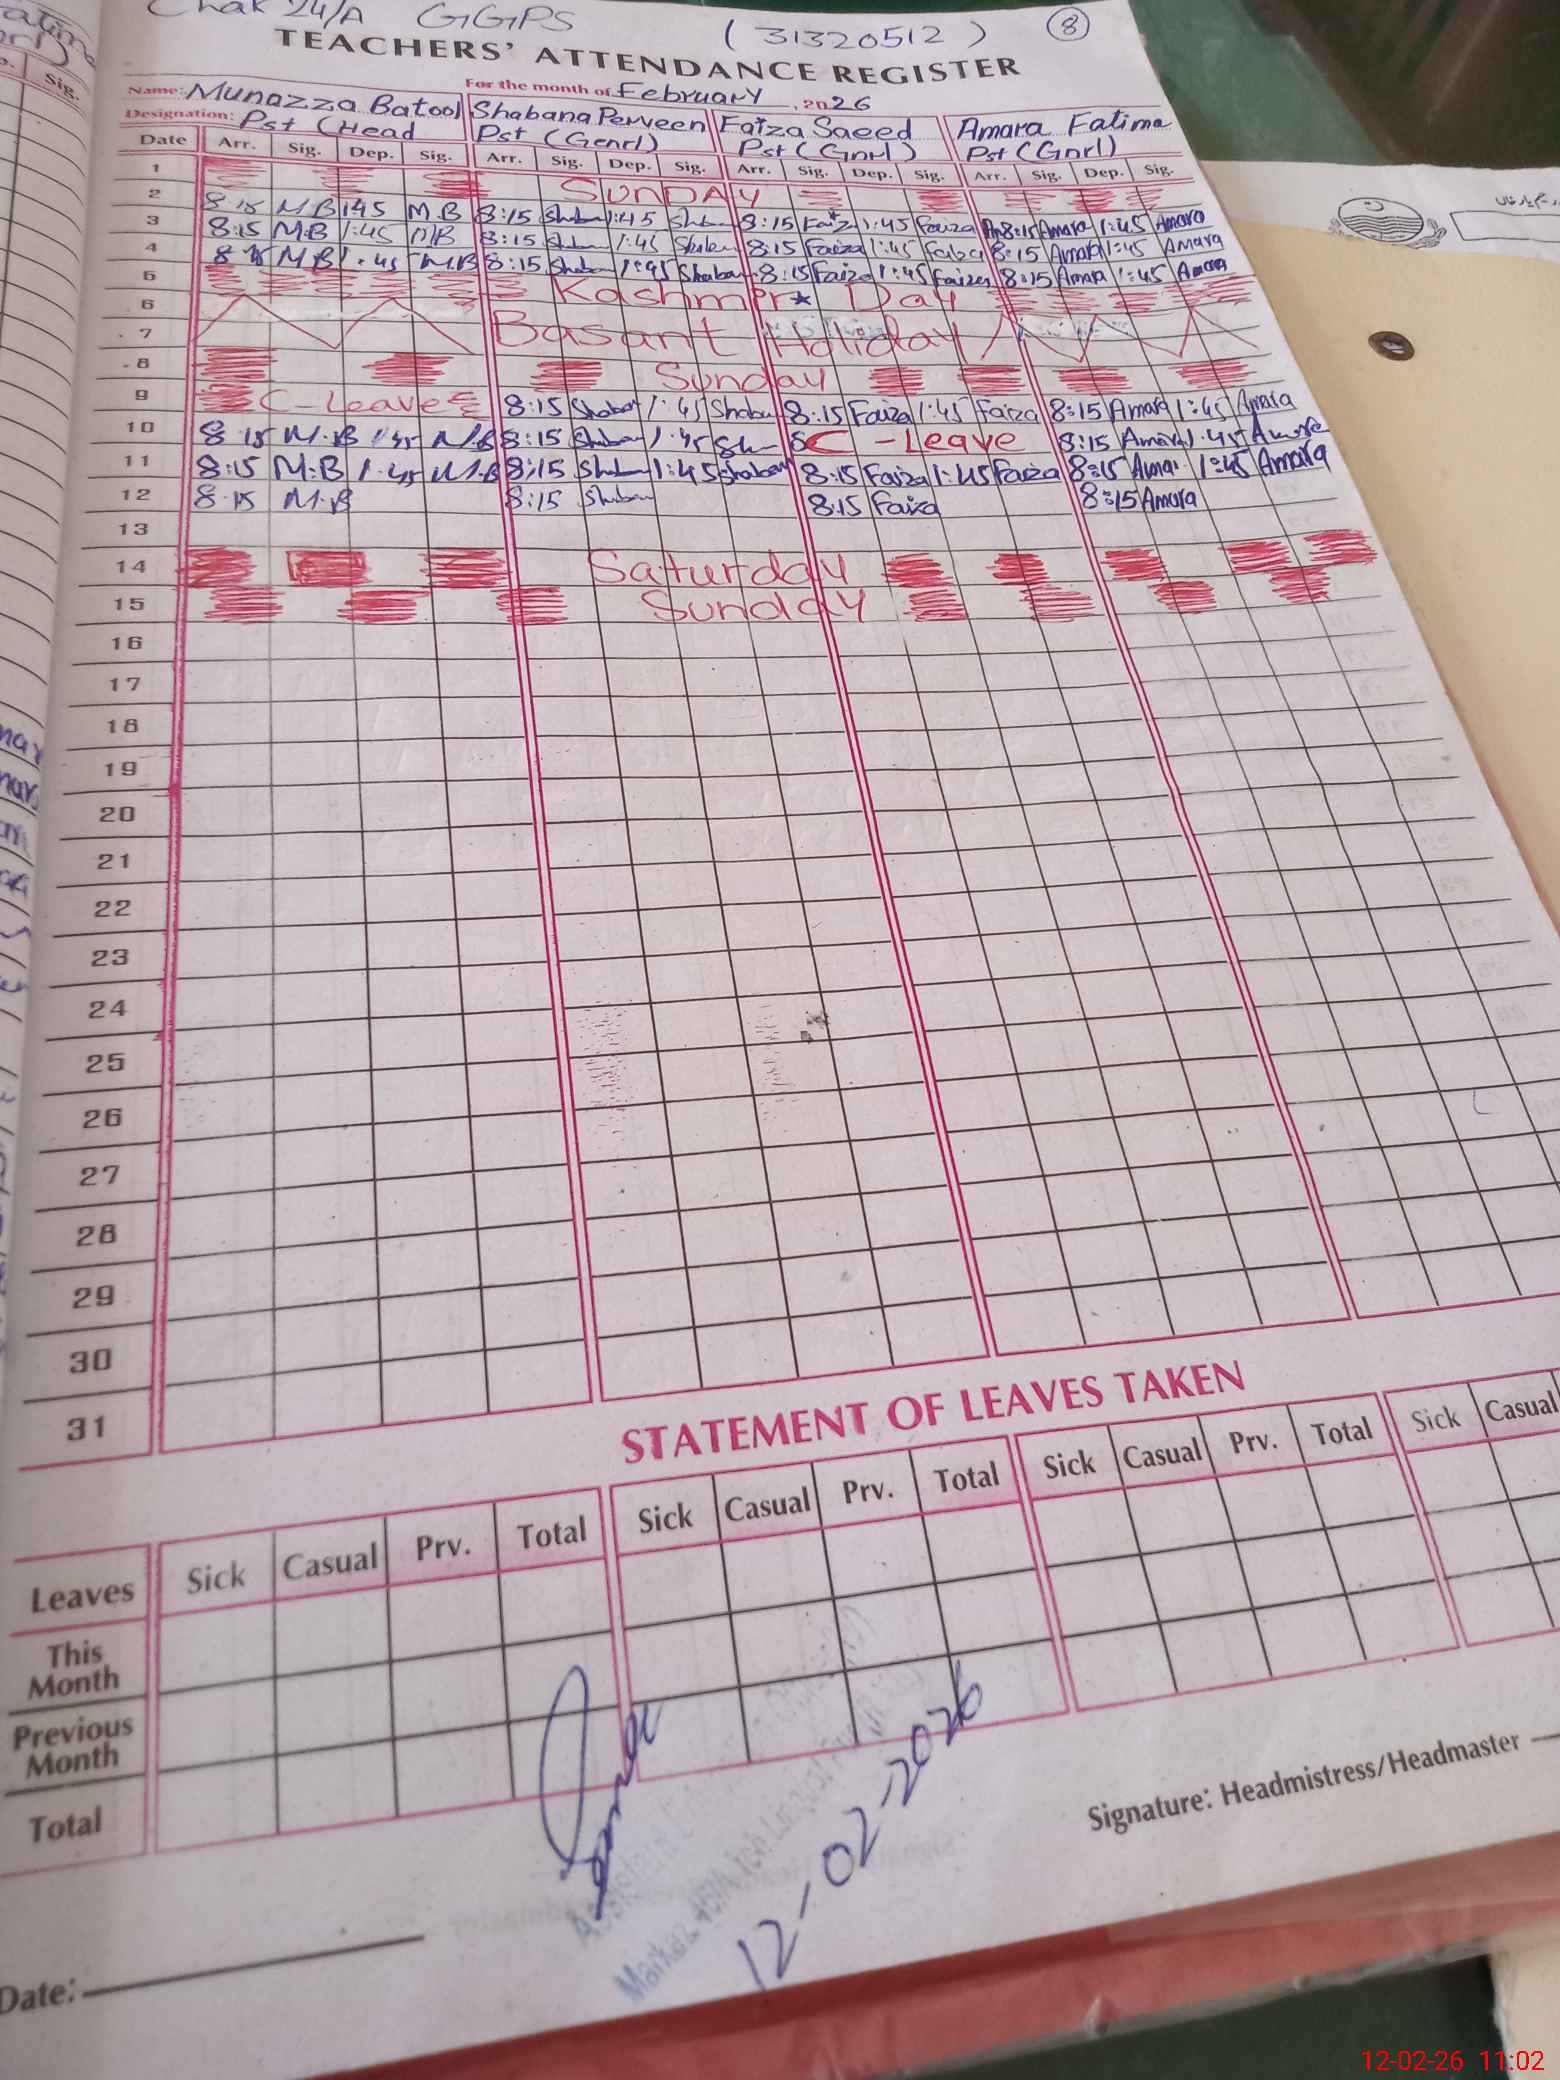 Chak 24/A GGPS (31320512) 8
TEACHERS' ATTENDANCE REGISTER
For the month of February, 2026
Name: Munazza Batool Shabana Perveen Faiza Saeed Amara Fatima
Designation: Pst (Head Pst (Genrl) Pst (Gnrl) Pst (Gnrl)
Date Arr. Sig. Dep. Sig. Arr. Sig. Dep. Sig. Arr. Sig. Dep. Sig. Arr. Sig. Dep. Sig.
1 SUNDAY
2 8:15 M B 1:45 M.B 8:15 Shaban 1:45 Shaban 8:15 Faiza 1:45 Faiza 8:15 Amara 1:45 Amara
3 8:15 M.B 1:45 M B 8:15 Shaban 1:45 Shaban 8:15 Faiza 1:45 Faiza 8:15 Amara 1:45 Amara
4 8:15 M B 1:45 M B 8:15 Shaban 1:45 Shaban 8:15 Faiza 1:45 Faiza 8:15 Amara 1:45 Amara
5 Kashmir Day
6
7 Basant Holiday
8 Sunday
9 C-Leave 8:15 Shaban 1:45 Shaban 8:15 Faiza 1:45 Faiza 8:15 Amara 1:45 Amara
10 8:15 M.B 1:45 M.B 8:15 Shaban 1:45 C-Leave 8:15 Amara 1:45 Amara
11 8:15 M:B 1:45 M.B 8:15 Shaban 1:45 Shaban 8:15 Faiza 1:45 Faiza 8:15 Amar 1:45 Amara
12 8:15 M.B 8:15 Shaban 8:15 Faiza 8:15 Amara
13
14 Saturday
15 Sunday
16
17
18
19
20
21
22
23
24
25
26
27
28
29
30
31
STATEMENT OF LEAVES TAKEN
Leaves Sick Casual Prv. Total Sick Casual Prv. Total Sick Casual Prv. Total Sick Casual
This Month
Previous Month
Total
12-02-2026
Signature: Headmistress/Headmaster
Date:
12-02-26 11:02